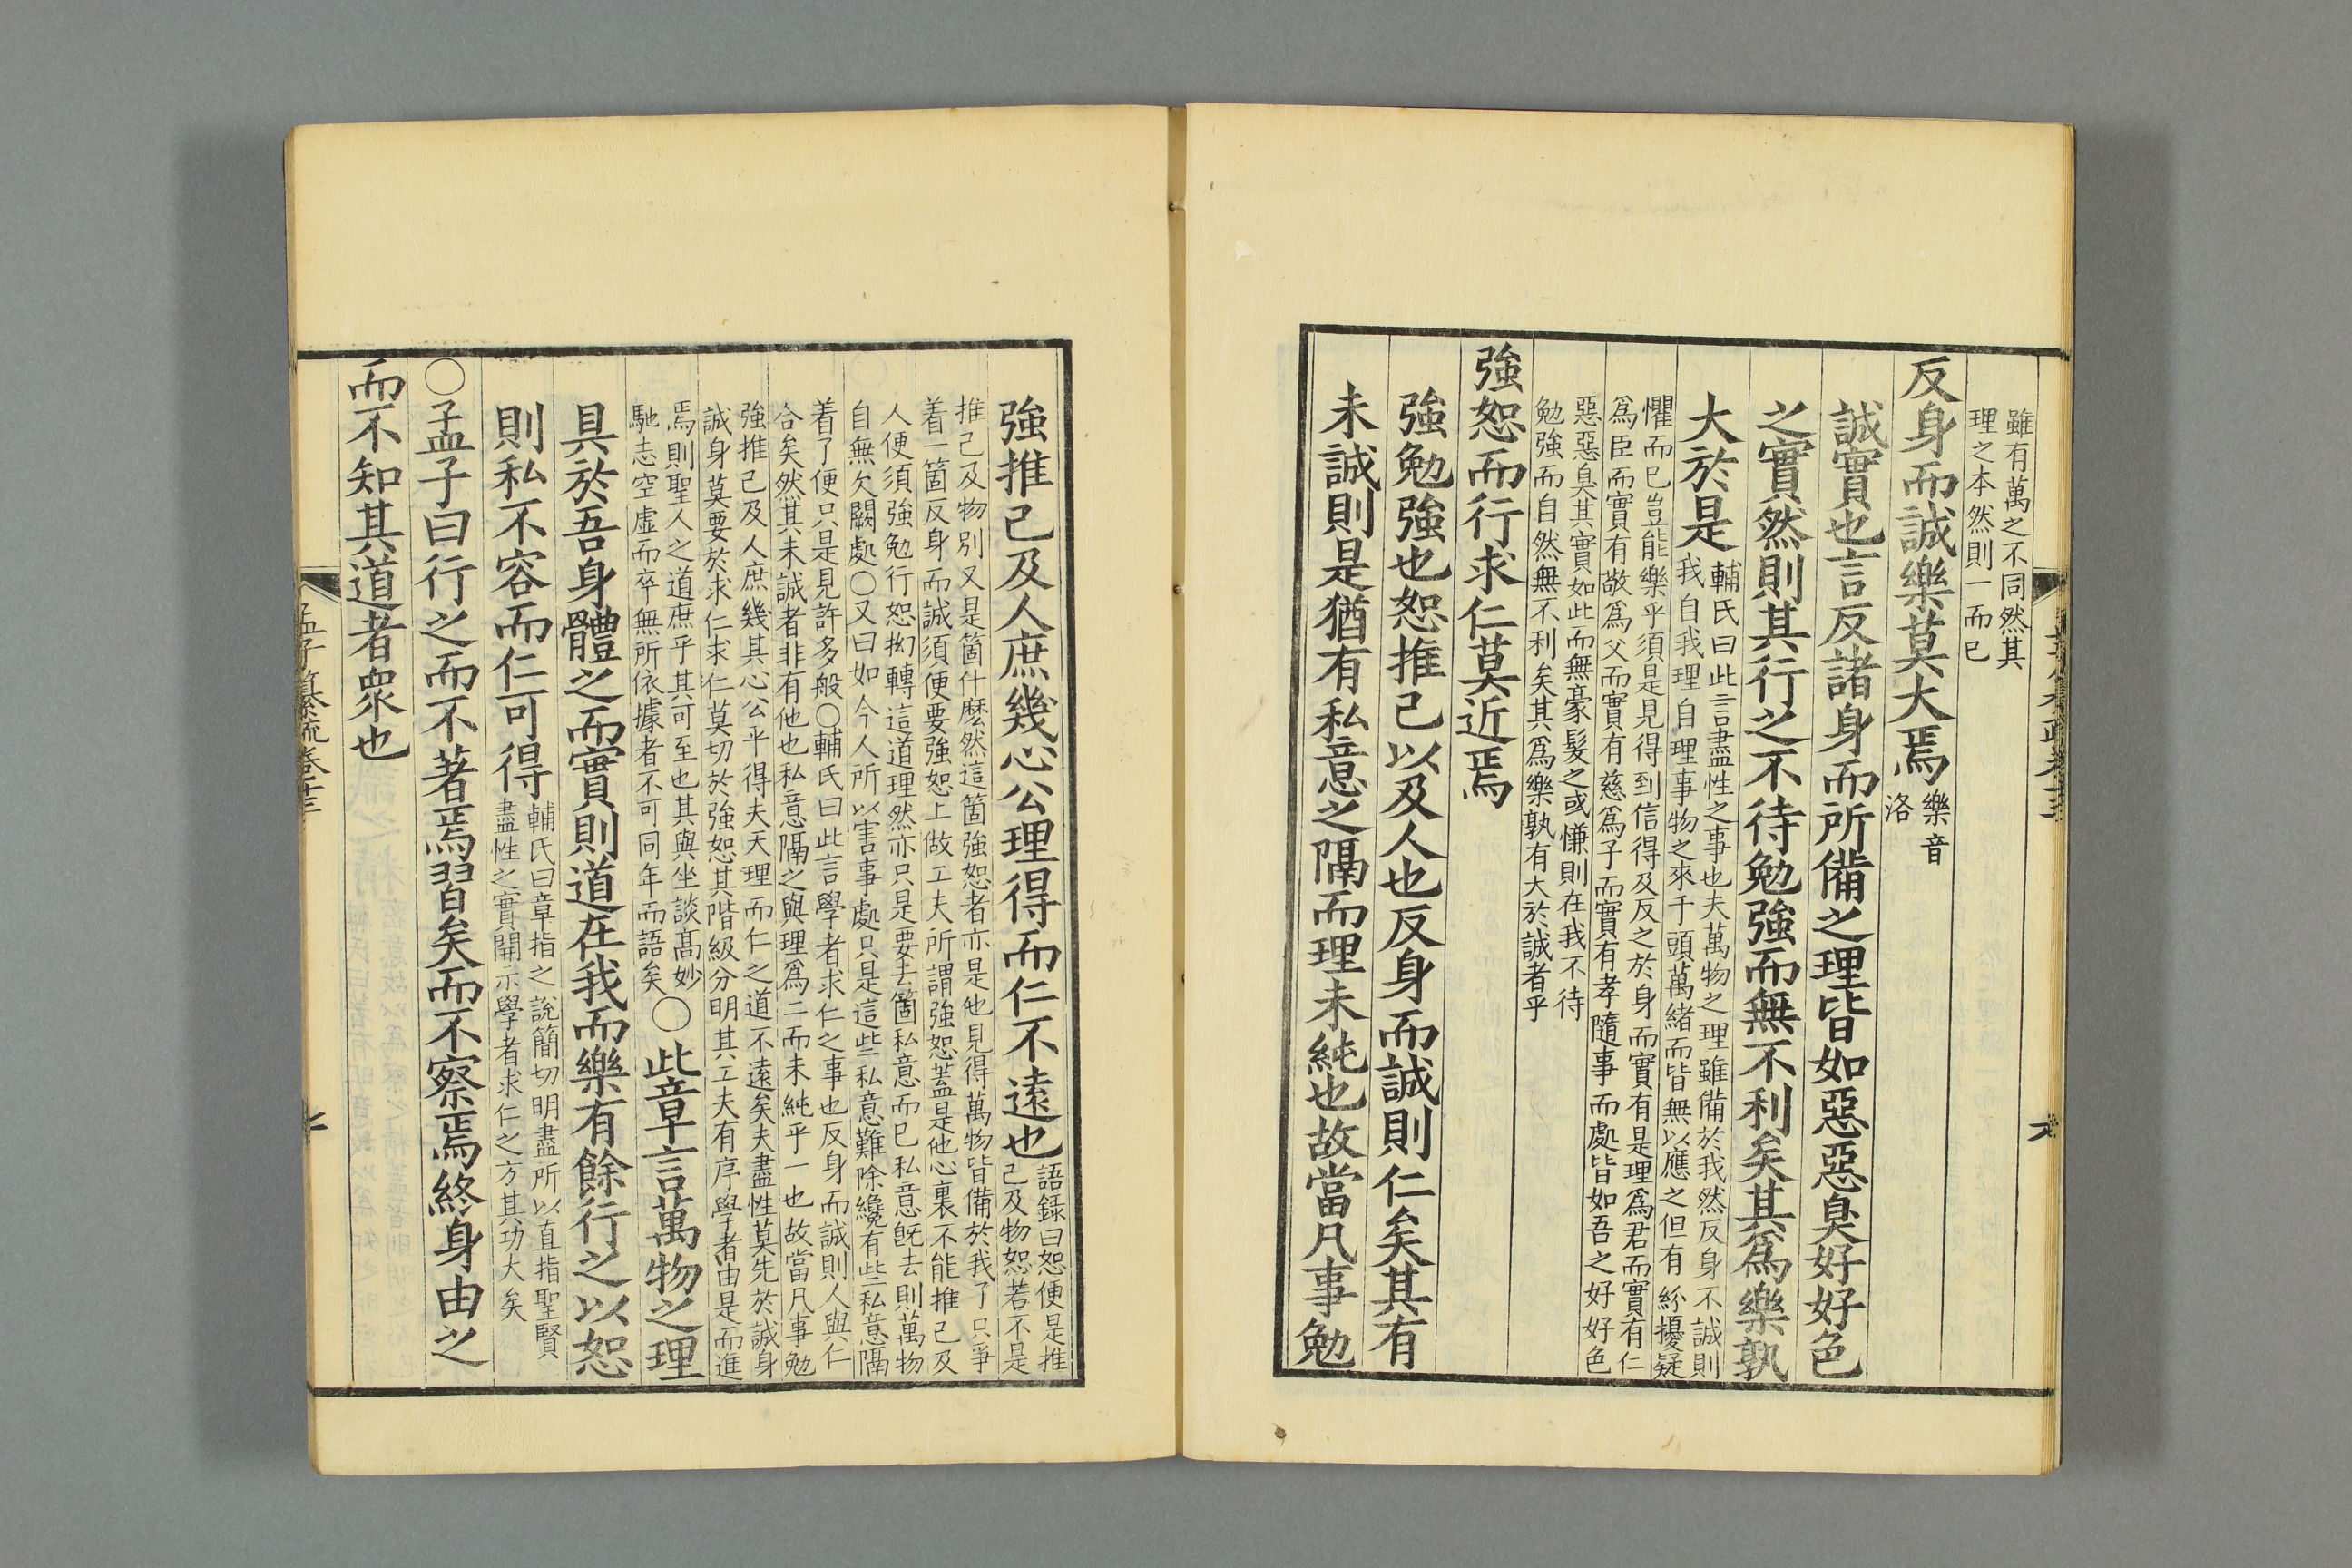 雖有萬之不同然其
理之本然則一而已
反身而誠樂莫大焉樂音
洛
誠實也言反諸身而所備之理皆如惡惡臭好好色
之實然則其行之不待勉強而無不利矣其爲樂孰
大於是輔氏曰此言盡性之事也夫萬物之理雖備於我然反身不誠則
我自我理自理事物之來千頭萬緒而皆無以應之但有紛擾疑
懼而已豈能樂乎須是見得到信得及反之於身而實有是理爲君而實有仁
爲臣而實有敬爲父而實有慈爲子而實有孝隨事而處皆如吾之好好色
惡惡臭其實如此而無豪髮之或慊則在我不待
勉強而自然無不利矣其爲樂孰有大於誠者乎
強恕而行求仁莫近焉
強勉強也恕推己以及人也反身而誠則仁矣其有
未誠則是猶有私意之隔而理未純也故當凡事勉
強推己及人庶幾心公理得而仁不遠也語録曰恕便是推
己及物恕若不是
推己及物別又是箇什麽然這箇強恕者亦是他見得萬物皆備於我了只爭
着一箇反身而誠須便要強恕上做工夫所謂強恕蓋是他心裏不能推己及
人便須強勉行恕拗轉這道理然亦只是要去箇私意而已私意旣去則萬物
自無欠闕處〇又曰如今人所以害事處只是這些私意難除纔有些私意隔
着了便只是見許多般〇輔氏曰此言學者求仁之事也反身而誠則人與仁
合矣然其未誠者非有他也私意隔之與理爲二而未純乎一也故當凡事勉
強推己及人庶幾其心公平得夫天理而仁之道不遠矣夫盡性莫先於誠身
誠身莫要於求仁求仁莫切於強恕其階級分明其工夫有序學者由是而進
焉則聖人之道庶乎其可至也其與坐談髙妙
馳志空虛而卒無所依據者不可同年而語矣
〇此章言萬物之理
具於吾身體之而實則道在我而樂有餘行之以恕
則私不容而仁可得輔氏曰章指之說簡切明盡所以直指聖賢
盡性之實開示學者求仁之方其功大矣
〇孟子曰行之而不著焉習矣而不察焉終身由之
而不知其道者衆也
孟子纂䟽卷十三